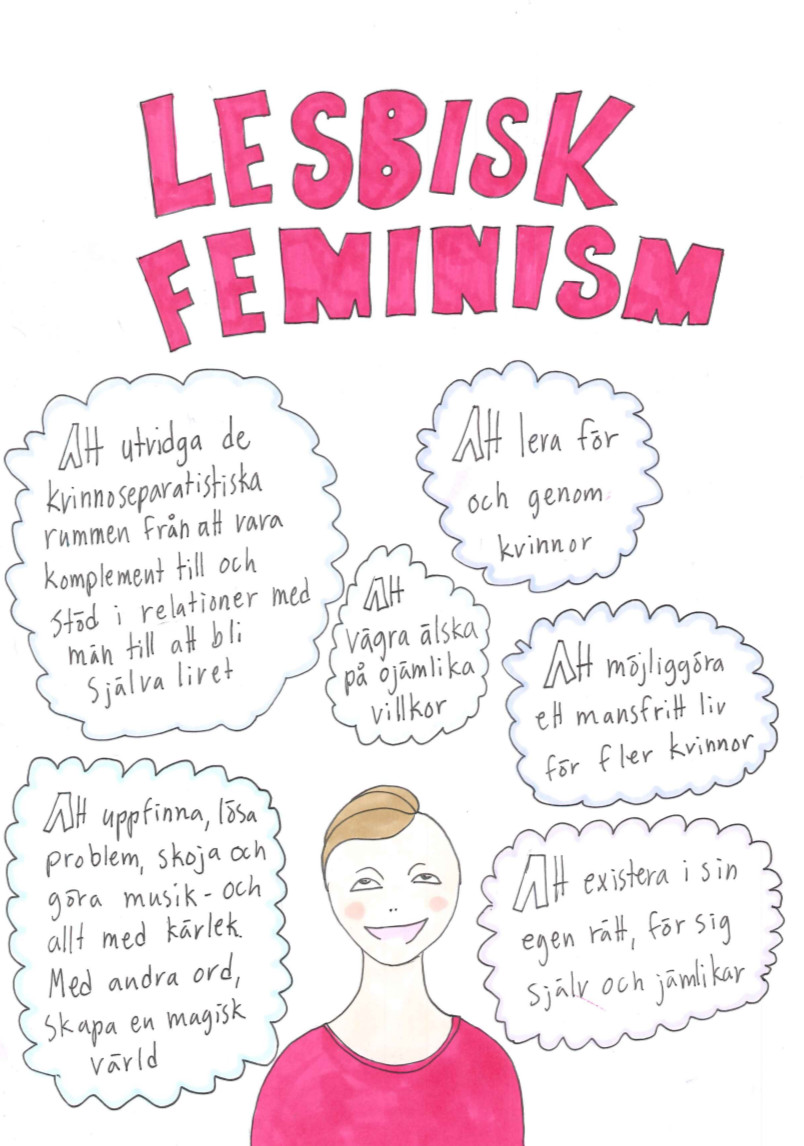 LESBISK
FEMINISM
Att utvidga de
kvinnoseparatistiska
rummen från att vara
komplement till och
stöd i relationer med
män till att bli
själva livet
Att lera för
och genom
kvinnor
Att
vägra älska
på ojämlika
villkor
Att möjliggöra
ett mansfritt liv
för fler kvinnor
Att uppfinna, lösa
problem, skoja och
göra musik - och
allt med kärlek.
Med andra ord,
skapa en magisk
värld
Att existera i sin
egen rätt, för sig
själv och jämlikar